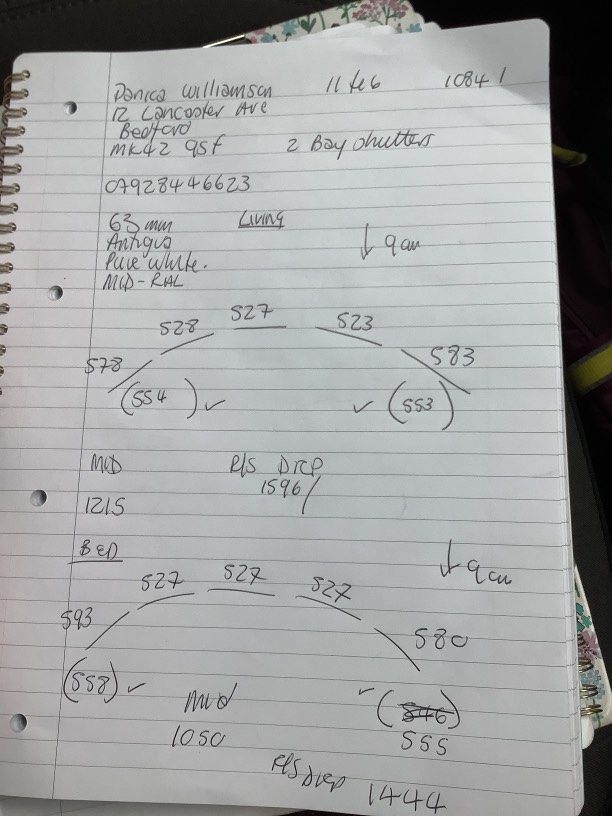 Danica Williamson 11 feb 10841
12 Lancaster Ave
Bedford
MK42 9SF 2 Bay shutters
07928446623
63mm Living
Antigua ↓ 9cm
Pure White.
MID-RAL
578 528 527 523 583
(554) ✓ ✓ (553)
MID R/S DROP
1215 1596/
BED ↓ 9cm
593 527 527 527 580
(558) ✓ ✓ (546)
Mid 555
1050
R/S Drop 1444